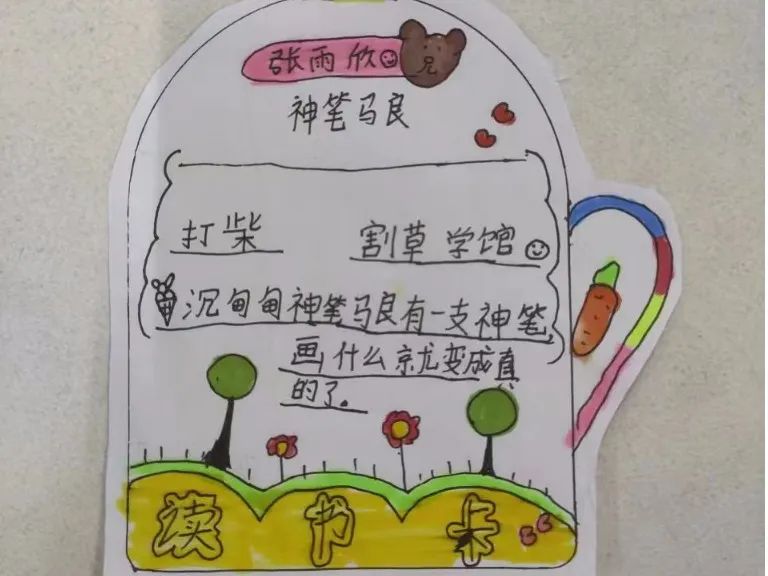 张雨欣
神笔马良
打柴 割草 学馆
沉甸甸神笔马良有一支神笔
画什么就变成真
的了。
读书卡